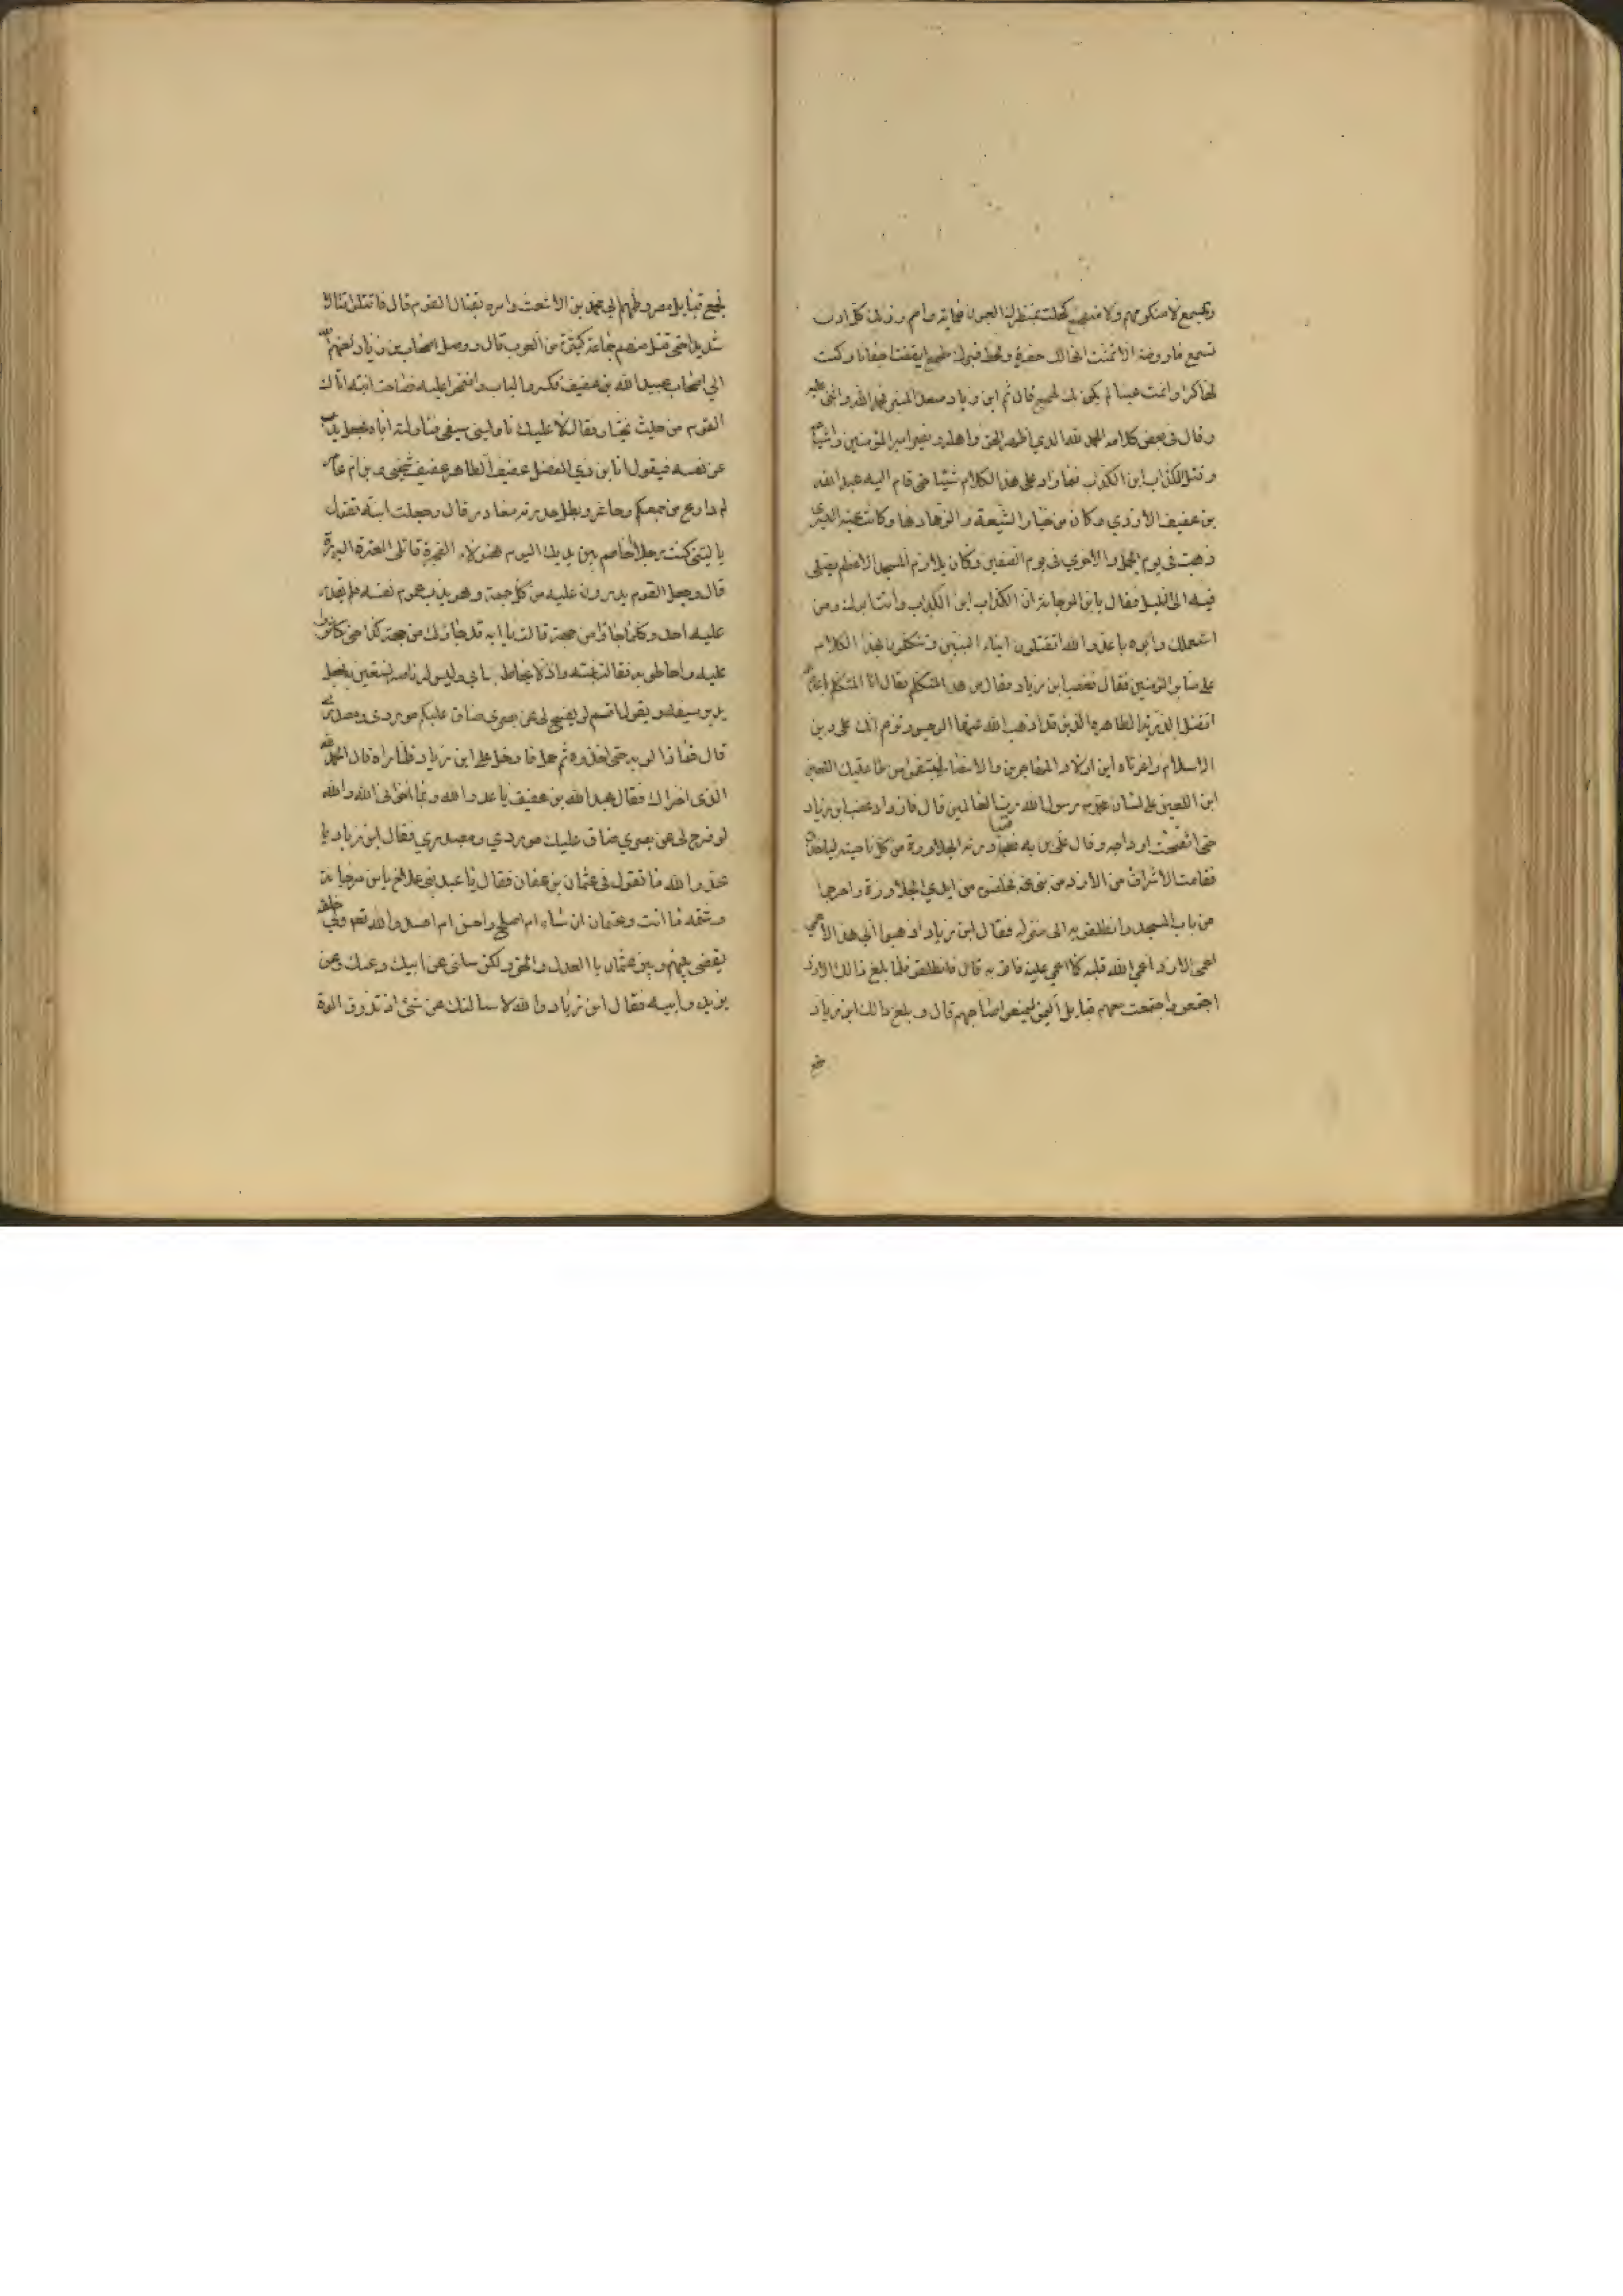 لا منكر منهم ولا متفجع كحلت بمنظرك العيون
تسمع ما روضة الا تمنت انها لك حفرة ولخط قبرك وكنت
قال ثم ان ابن زياد صعد المنبر فحمد الله واثنى عليه
وقال في بعض كلامه الحمد لله الذي اظهر الحق واهله ونصر امير المؤمنين واشياعه
وقتل الكذاب ابن الكذاب فما زاد على هذا الكلام شيئا حتى قام اليه عبد الله
بن عفيف الازدي وكان من خيار الشيعة والزهاد وكانت عينه اليسرى
ذهبت في يوم الجمل والاخرى في يوم الصفين وكان يلازم المسجد الاعظم يصلي
فيه الى الليل فقال يابن المرجانة ان الكذاب ابن الكذاب وانت ابوك ومن
استعملك وابوه يا عدو الله اتقتلون ابناء النبيين وتتكلمون بهذا الكلام
على منابر المؤمنين فقال فغضب ابن زياد فقال من هذا المتكلم فقال انا المتكلم
اتقتل الذرية الطاهرة الذين قد اذهب الله عنها الرجس وتزعم انك على دين
الاسلام واغوثاه اين اولاد المهاجرين والانصار لينتقمون من طاغيتك اللعين
ابن اللعين على لسان محمد رسول الله رب العالمين قال فازداد غضب ابن زياد
حتى انتفخت اوداجه وقال علي به فتبادرته الجلاوزة من كل ناحية ليأخذوه
فقامت الاشراف من الازد من بني عمه فخلصوه من ايدي الجلاوزة واخرجوا
من باب المسجد وانطلقوا به الى منزله فقال ابن زياد اذهبوا الى هذا الاعمى
اعمى الازد اعمى الله قلبه كما اعمى عينه فاتوني به قال فانطلقوا فلما بلغ ذالك الازد
اجتمعوا واجتمعت معهم قبايل اليمن ليمنعوا صاحبهم قال وبلغ ذالك ابن زياد
فجمع
فجمع قبايل مضر وضمهم الى محمد بن الاشعث وامره بقتال القوم قال فاقتتلوا قتالا
شديدا حتى قتل منهم جماعة كثيرة من العرب قال ووصل اصحاب بن زياد لعنهم الله
الى اصحاب عبد الله بن عفيف فكسروا الباب واقتحموا عليه فصاحت ابنته اتاك
القوم من حيث تحذر فقال لا عليك ناوليني سيفي فناولته اياه فجعل يذب
عن نفسه فيقول انا ابن ذي الفضل عفيف الطاهر عفيف شيخي وبن ام عامر
كم دارع من جمعكم وحاسر وبطل مغادر قال وجعلت ابنته تقول
يا ليتني كنت رجلا اخاصم بين يديك اليوم هؤلاء الفجرة قاتلي العترة البررة
قال وجعل القوم يدورون عليه من كل جهة وهو يذب عن نفسه فلم يقدر
عليه احد وكلما جاؤا من جهة قالت يا ابه قد جاؤك من جهة كذا حتى كاثروا
عليه واحاطوا به فقالت بنته واذلاه يحاط بابي وليس له ناصر يستعين به فجعل
يدير سيفه ويقول اقسم لو يفسح لي عن بصري ضاق عليكم موردي ومصدري
قال فما زالوا به حتى اخذوه ثم حمل فادخل على ابن زياد فلما راه قال الحمد لله
الذي اخزاك فقال عبد الله بن عفيف يا عدو الله وبما اخزاني الله والله
لو فرج لي عن بصري ضاق عليك موردي ومصدري فقال ابن زياد يا
عدو الله ما تقول في عثمان بن عفان فقال يا عبد بني علاج يا بن مرجانة
وشتمه ما انت وعثمان ان شاء ام اصلح واحسن ام افسد والله تعالى ولي خلقه
يقضي بينهم وبين عثمان بالعدل والحق ولكن سلني عن ابيك وعنك وعن
يزيد وابيه فقال ابن زياد والله لا سالتك عن شئ او تذوق الموت